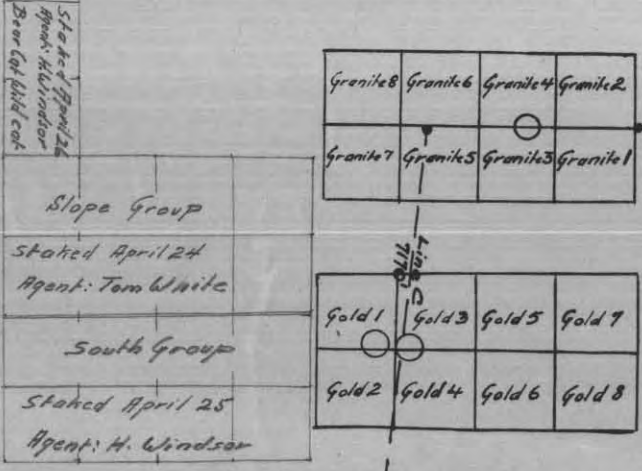 Staked April 26
Agent: H. Windsor
Bear Cat Wild cat
Slope Group
Staked April 24
Agent: Tom White
South Group
Staked April 25
Agent: H. Windsor
Granite 8 Granite 6 Granite 4 Granite 2
Granite 7 Granite 5 Granite 3 Granite 1
Line C
Gold 1 Gold 3 Gold 5 Gold 7
Gold 2 Gold 4 Gold 6 Gold 8